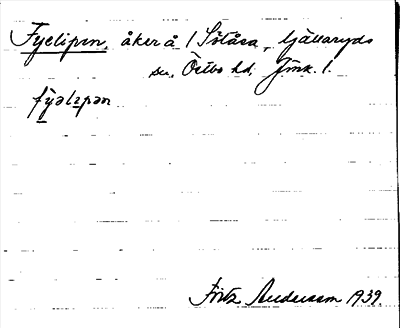 Fyelipen, åker å 1 Slätåsa, Hjälmaryds
sn, Östbo hd, Jönk. l.
fyəlɩpən
Fritz Andersson 1939.